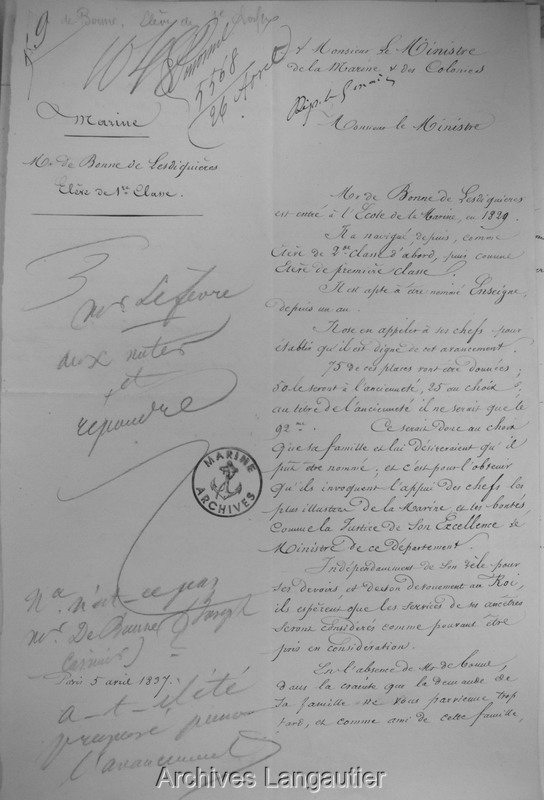 de Bonne. Elève de 1re
5568
26 Avril
Marine
Mr. de Bonne de Lesdiguières
Elève de 1re Classe.
Mr Lefèvre
deux notes
et
répondre
MARINE
ARCHIVES
N'est-ce pas
Mr. De Bonne (Joseph
Paris 5 avril 1837.
a-t-il été
proposé pour
l'avancement
A Monsieur le Ministre
de la Marine & des Colonies
Monsieur le Ministre
Mr. de Bonne de Lesdiguières
est entré à l'Ecole de la Marine, en 1829.
Il a navigué depuis, comme
Elève de 2me classe d'abord, puis comme
Elève de première classe.
Il est apte à être nommé Enseigne,
depuis un an.
Il ose en appeler à ses chefs pour
établir qu'il est digne de cet avancement.
75 de ces places vont être données;
50 le seront à l'ancienneté, 25 au choix;
au titre de l'ancienneté il ne serait que le
92me. Ce serait donc au choix
que sa famille et lui désireraient qu'il
pût être nommé; et c'est pour l'obtenir
qu'ils invoquent l'appui des chefs les
plus illustres de la Marine et les bontés,
comme la Justice de Son Excellence le
Ministre de ce Département.
Indépendamment de son zèle pour
ses devoirs et de son dévouement au Roi,
ils espèrent que les services de ses ancêtres
seront considérés comme pouvant être
pris en considération.
En l'absence de Mr de Bonne,
dans la crainte que la demande de
sa famille ne vous parvienne trop
tard, et comme ami de cette famille,
Archives Langautier